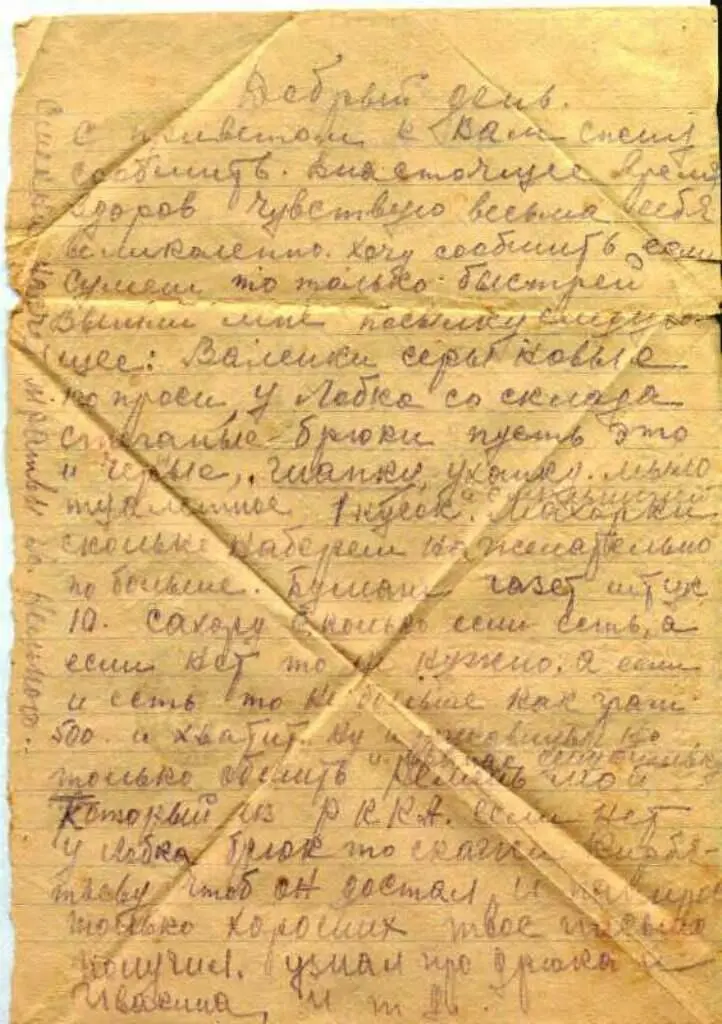 Добрый день.
с приветом к Вам спешу
сообщить. Внасточщее время
здоров чувствую весьма себя
великалепно. Хочу сообщить, если
сумеш то только быстрей
вышли мне посылку следую-
щее: Валенки серы новые
по проси у Лобка со склада
стеганые брюки пусть это
и черые, шапку, ушанку. мыло
туалетное 1 кусок. Махорки
сколько наберешь но желательно
по больше. Бумаги газет штук
10. сахору сколько если есть, а
если нет то не нужно. а если
и есть то не больше как грам
500. и хватит. ну и
только обшить ремень мой
который из РККА. если нет
у Лобка брюк то скажи
чтоб он достал, и
только хороших твое письмо
получил. узнал про дрюка и
Ивасина, и т д.